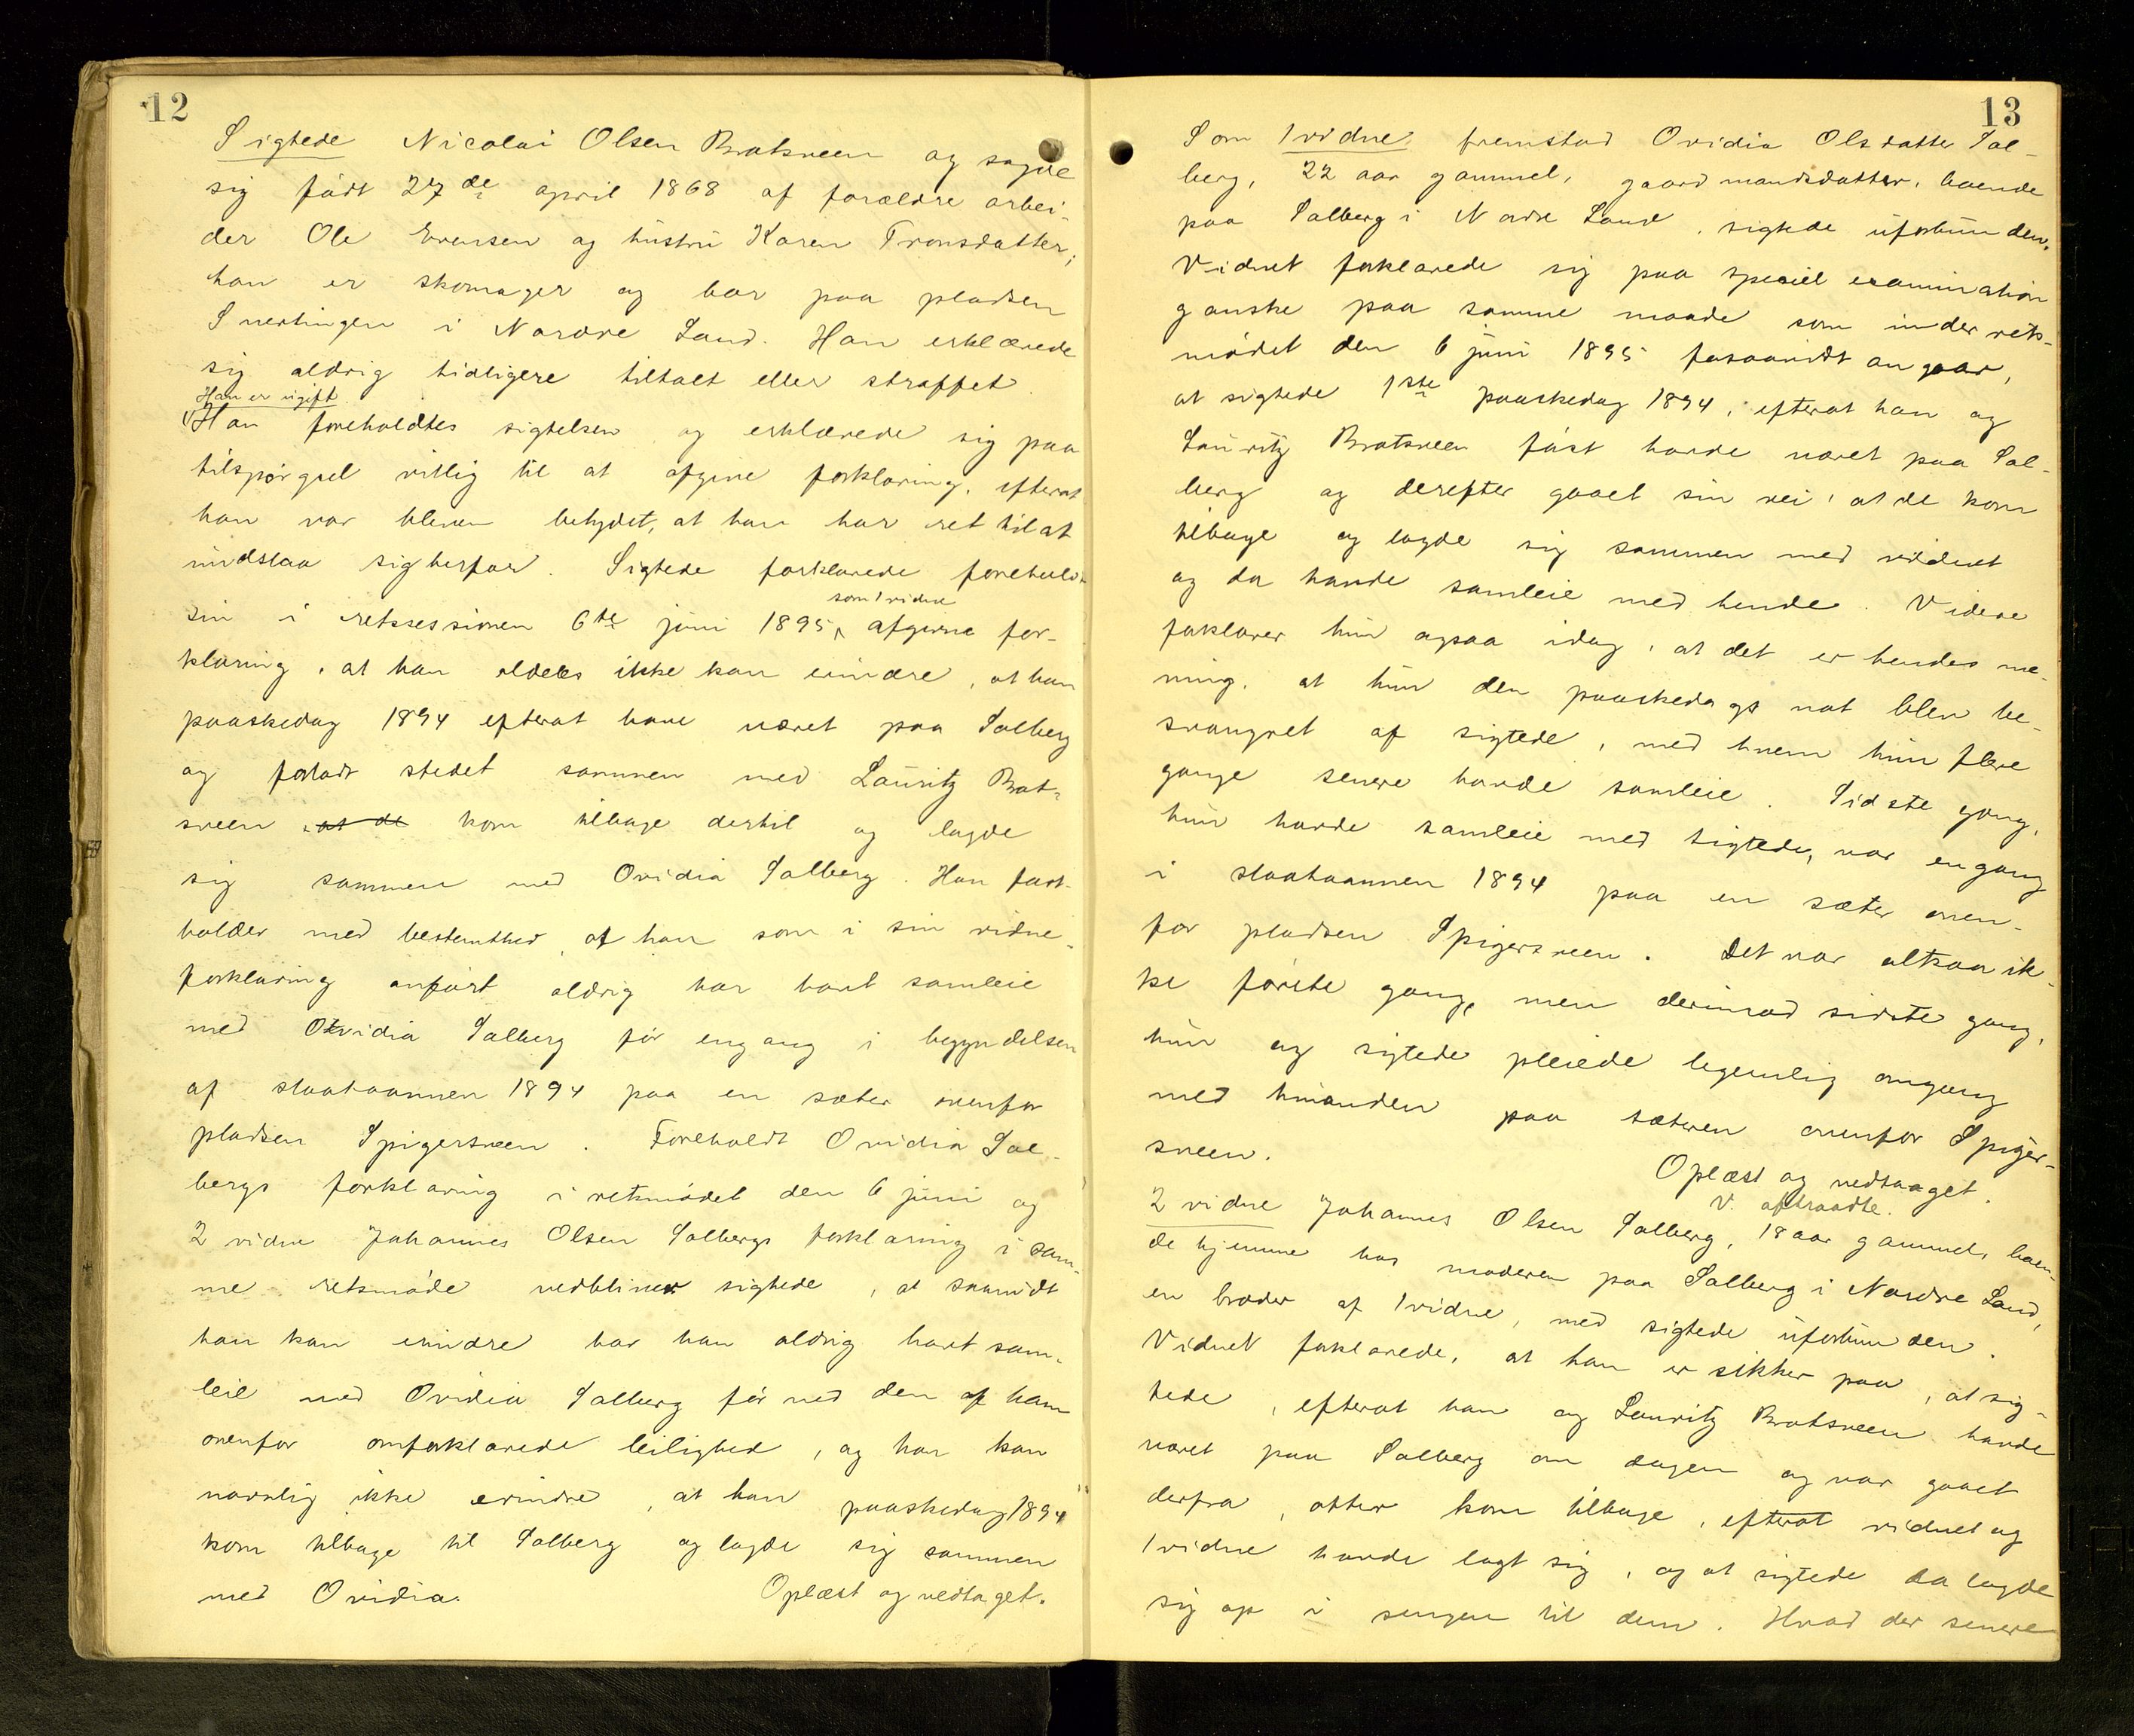 12
Sigtede Nicolai Olsen Bratsveen og sagde
sig född 27de april 1868 af forældre arbei-
der Ole Evensen og hustru Karen Tronsdatter;
han er skomager og bor paa pladsen
Snertingen i Nordre Land. Han erklærede
sig aldrig tidligere tiltalt eller straffet.
Han er ugift
Han foreholdtes sigtelsen og erklærede sig paa
tilspørgsel villig til at afgive forklaring, efterat
han var bleven betydet, at han har ret til at
undslaa sig herfor. Sigtede forklarede foreholdt
sin i retssessionen 6te juni 1895 som 1 vidne afgivne for-
klaring, at han aldeles ikke kan erindre, at han
paaskedag 1894 efterat have været paa Solberg
og forladt stedet sammen med Lauritz Brat-
sveen at de kom tilbage dertil og lagde
sig sammen med Ovidia Solberg. Han fast-
holder med bestemthed, at han som i sin vidne-
forklaring anført aldrig har havt samleie
med Ovidia Solberg før engang i begyndelsen
af slaataannen 1894 paa en sæter ovenfor
pladsen Spigersveen. Foreholdt Ovidia Sol-
bergs forklaring i retsmødet den 6 juni og
2 vidne Johannes Olsen Solbergs forklaring i sam-
me retsmøde vedbliver sigtede, at saavidt
han kan erindre har han aldrig havt sam-
leie med Ovidia Solberg før ved den af ham
ovenfor omforklarede leilighed, og han kan
navnlig ikke erindre, at han paaskedag 1894
kom tilbage til Solberg og lagde sig sammen
med Ovidia. Oplæst og vedtaget.
13
Som 1 vidne fremstod Ovidia Olsdatter Sol-
berg, 22 aar gammel, gaardmandsdatter, boende
paa Solberg i Nordre Land, sigtede uforbunden.
Vidnet forklarede sig paa speciel examination
ganske paa samme maade som under rets-
mødet den 6 juni 1895 forsaavidt angaar,
at sigtede 1ste paaskedag 1894, efterat han og
Lauritz Bratsveen først havde været paa Sol-
berg og derefter gaaet sin vei, at de kom
tilbage og lagde sig sammen med vidnet
og da havde samleie med hende. Videre
forklarer hun ogsaa idag, at det er hendes me-
ning, at hun den paaskedags nat blev be-
svangret af sigtede, med hvem hun flere
gange senere havde samleie. Sidste gang,
hun havde samleie med sigtede, var engang
i slaataannen 1894 paa en sæter oven-
for pladsen Spigersveen. Det var altsaa ik-
ke første gang, men derimod sidste gang,
hun og sigtede pleiede legemlig omgang
med hinanden paa sæteren ovenfor Spiger-
sveen.
Oplæst og vedtaget.
V. aftraadte.
2 vidne Johannes Olsen Solberg, 18 aar gammel, boen-
de hjemme hos moderen paa Solberg i Nordre Land,
en broder af 1 vidne, med sigtede uforbunden.
Vidnet forklarede, at han er sikker paa, at sig-
tede, efterat han og Lauritz Bratsveen havde
været paa Solberg om dagen og var gaaet
derfra, atter kom tilbage, efterat vidnet og
1 vidne havde lagt sig, og at sigtede da lagde
sig op i sengen til dem. Hvad der senere